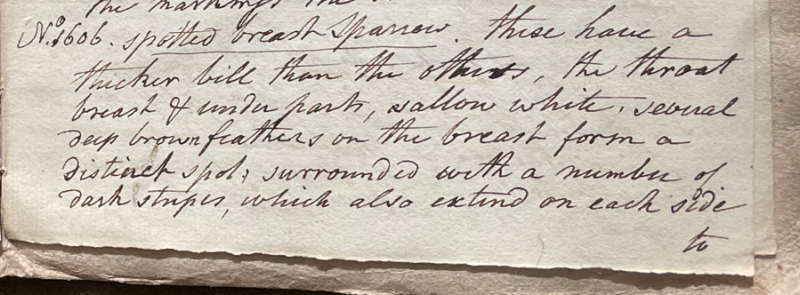 the markings the
No. 1606. spotted breast Sparrow. these have a
thicker bill than the others, the throat
breast & under parts, sallow white, several
deep brown feathers on the breast form a
distinct spot, surrounded with a number of
dark stripes, which also extend on each side
to